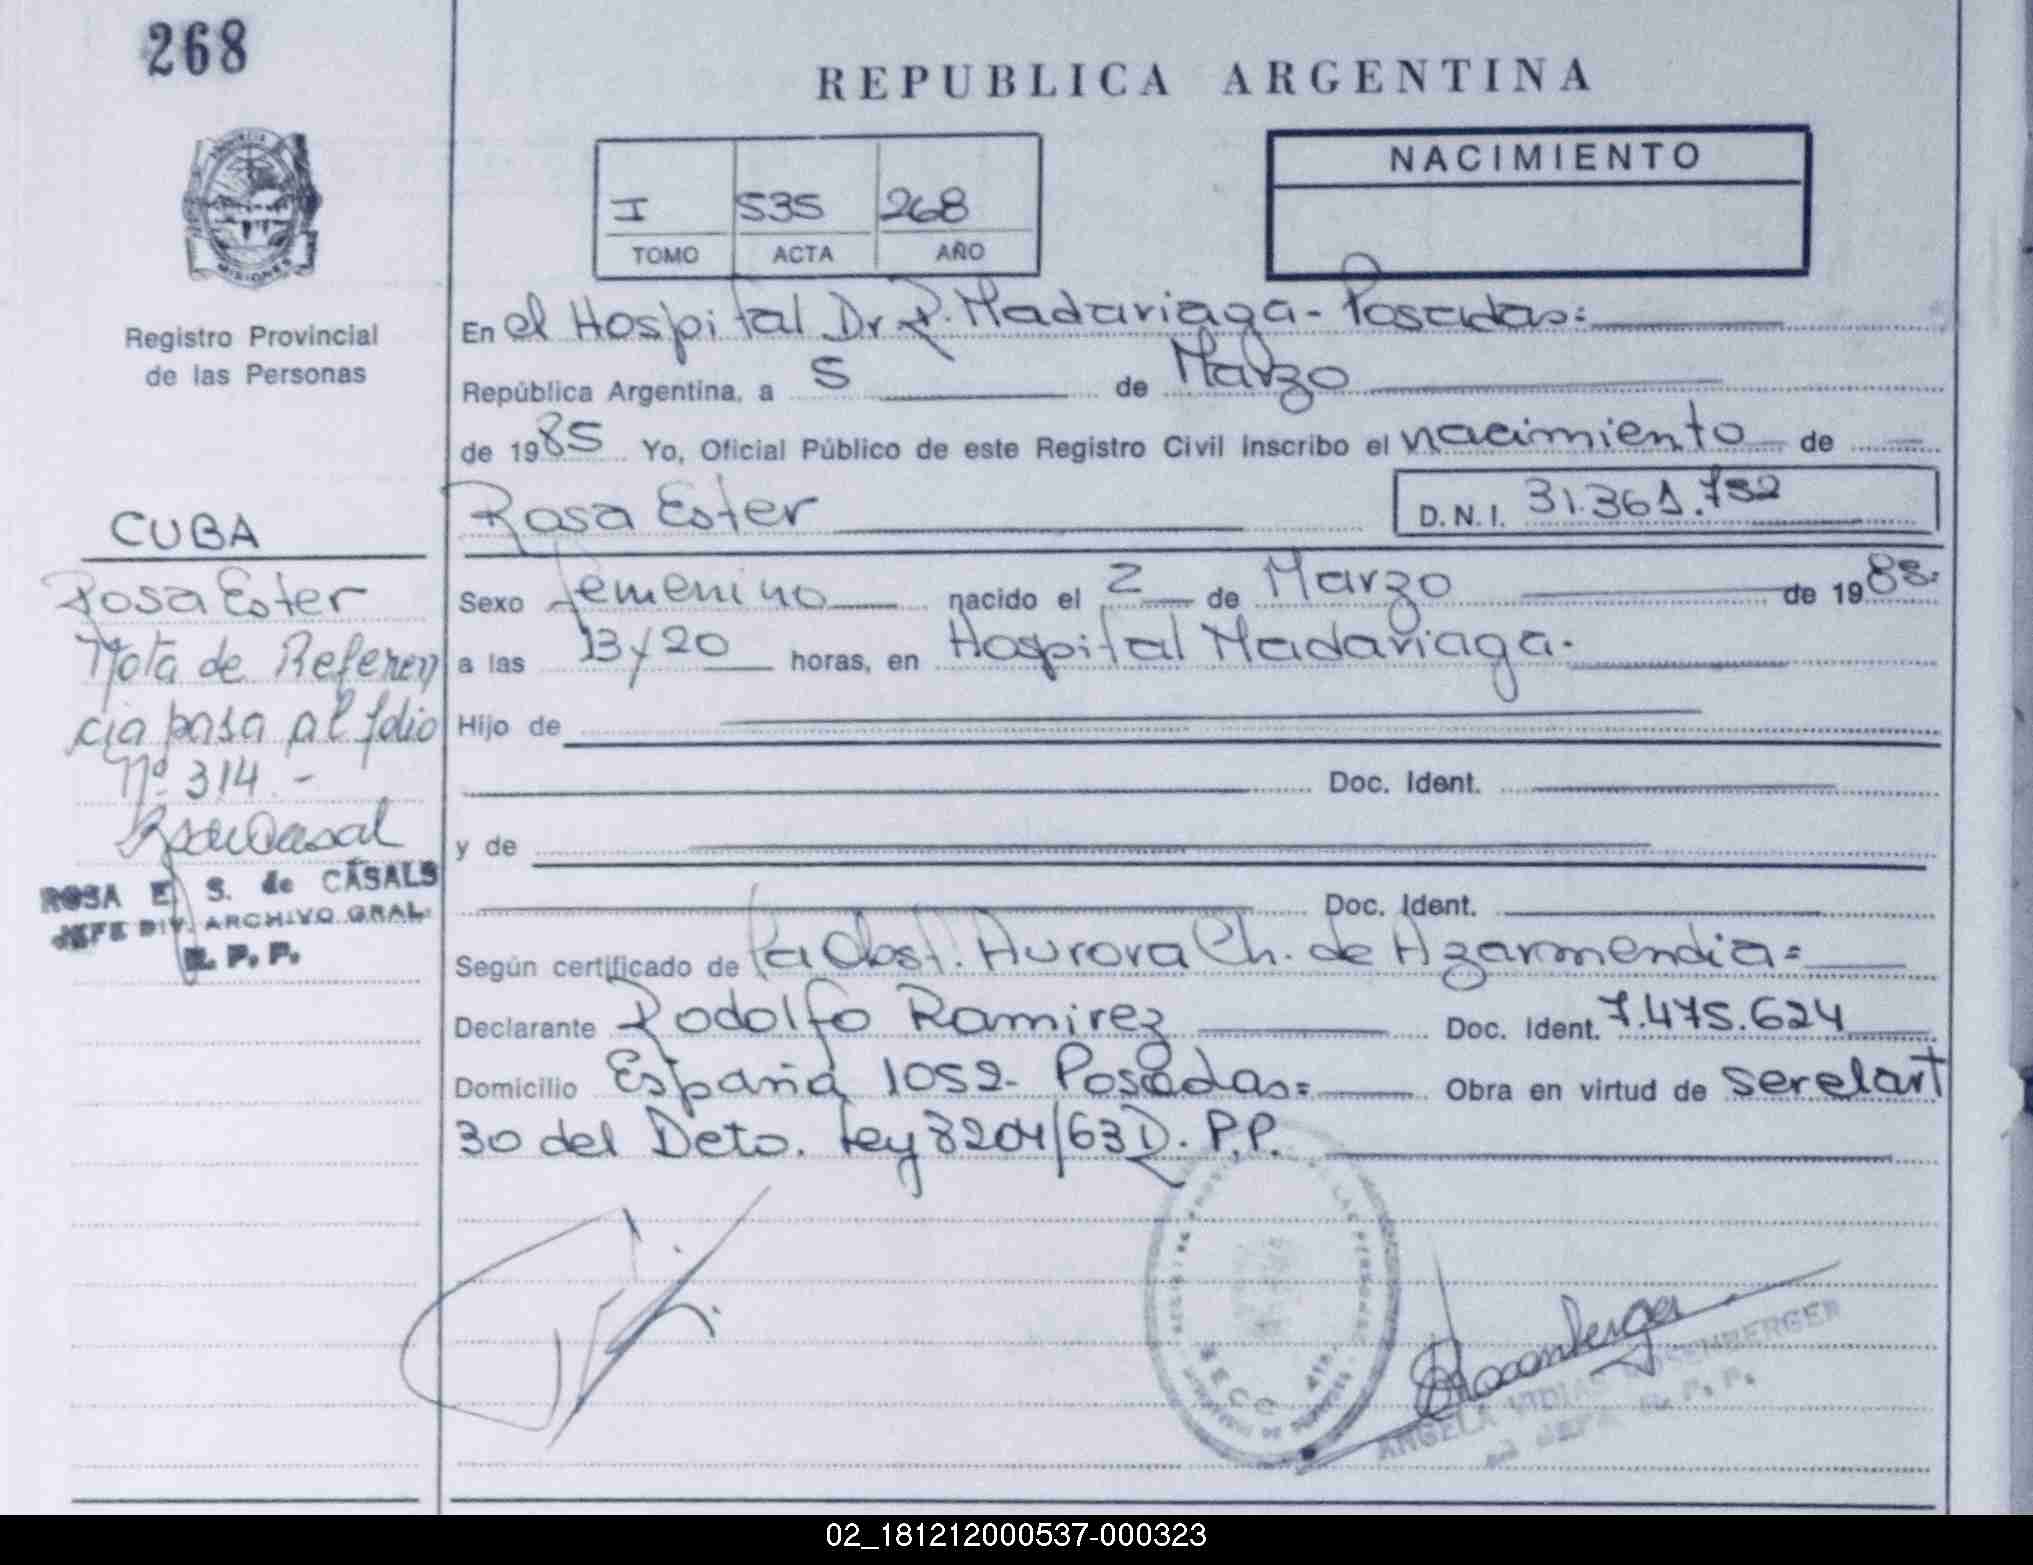 268
REPUBLICA ARGENTINA
NACIMIENTO
I 535 268
TOMO ACTA AÑO
Registro Provincial
de las Personas
En el Hospital Dr R. Madariaga - Posadas =
República Argentina, a 5 de Marzo
de 1985 Yo, Oficial Público de este Registro Civil inscribo el nacimiento de
Rosa Ester D.N.I. 31.361.752
CUBA
Rosa Ester
Nota de Referen
cia pasa al folio
Nº 314.-
ROSA E. S. de CASALS
JEFE DIV. ARCHIVO GRAL.
R. P. P.
Sexo femenino nacido el 2 de Marzo de 1985.
a las 13 y 20 horas, en Hospital Madariaga.
Hijo de
Doc. Ident.
y de
Doc. Ident.
Según certificado de la Obst. Aurora Ch. de Azarmendia =
Declarante Rodolfo Ramirez Doc. Ident. 7.475.624
Domicilio España 1052- Posadas = Obra en virtud de ser el art
30 del Deto. Ley 8204/63 D. P.P.
ANGELA ROSEMBERGER
JEFA R. P. P.
02_181212000537-000323